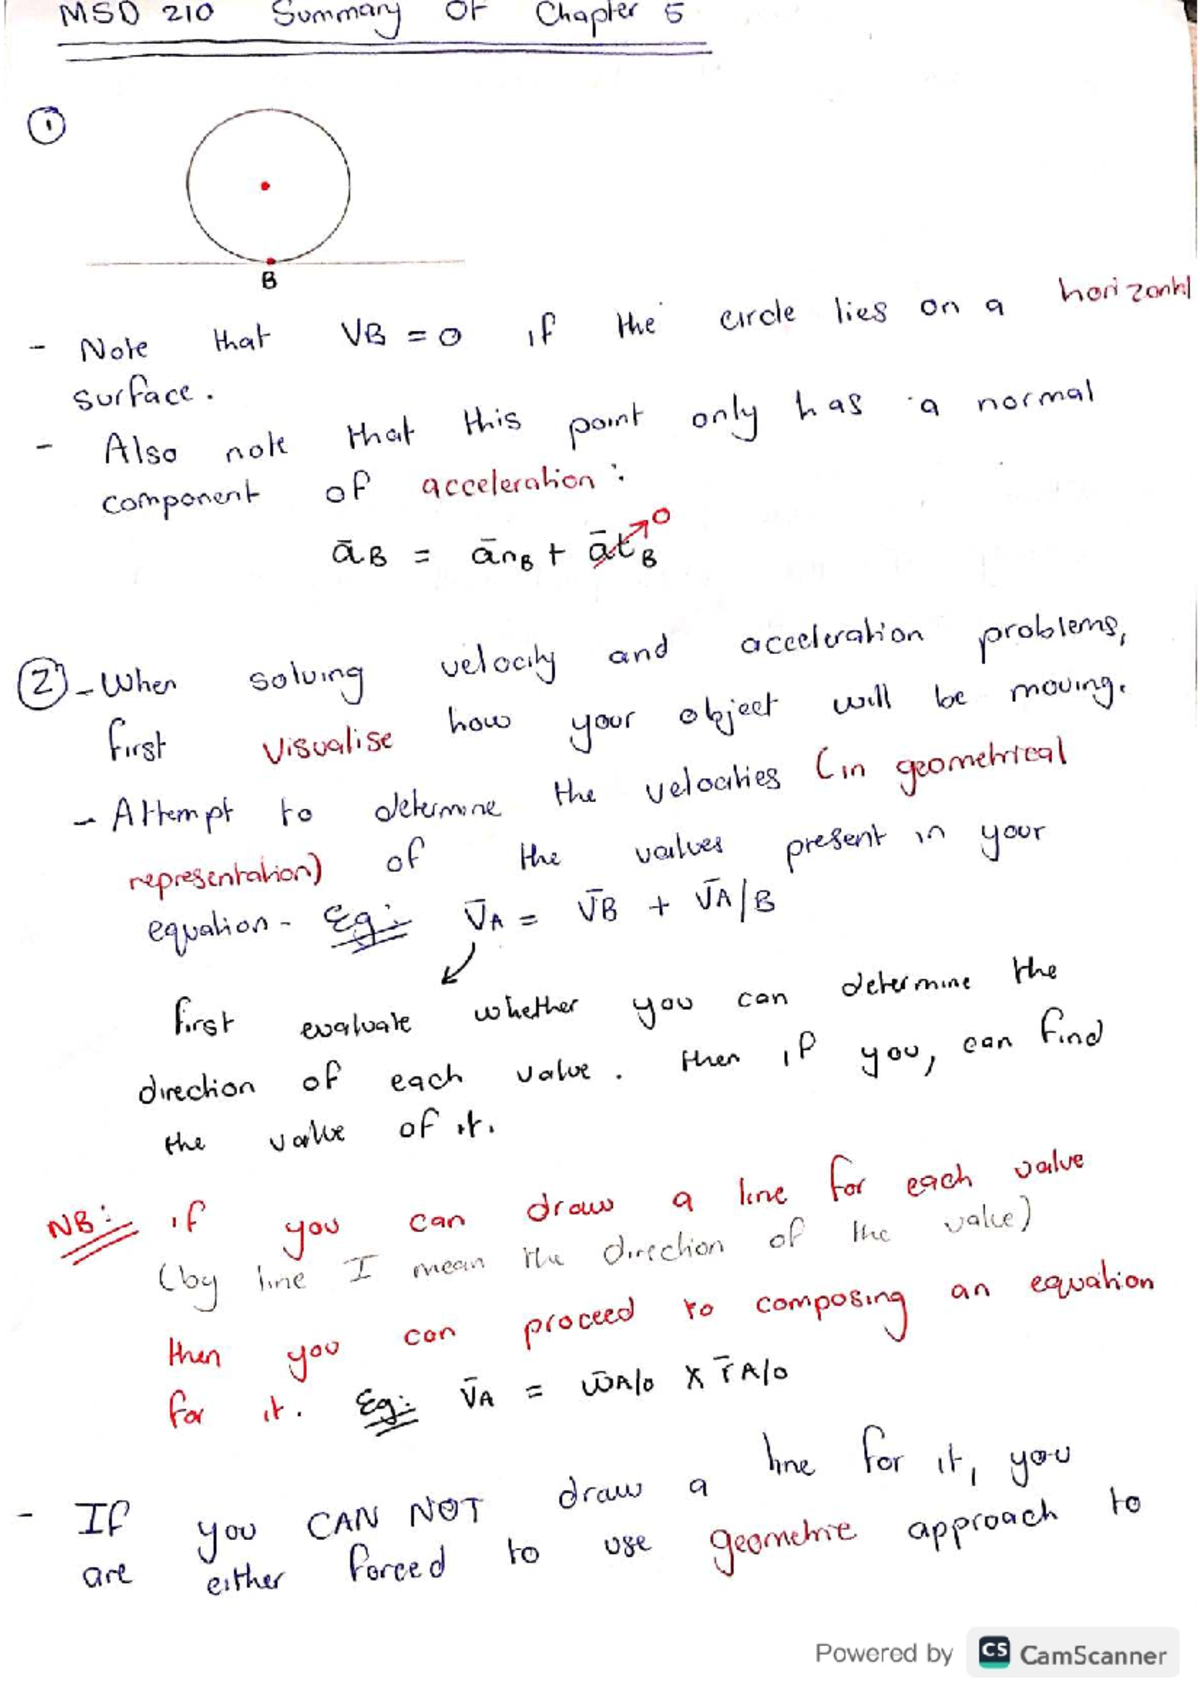 MSD 210 Summary Of Chapter 5
①
B
- Note that VB = 0 if the circle lies on a horizontal
surface.
- Also note that this point only has a normal
component of acceleration:
āB = ānB + ātB → 0
② - When solving velocity and acceleration problems,
first visualise how your object will be moving.
- Attempt to determine the velocities (in geometrical
representation) of the values present in your
equation - Eg: V̄A = V̄B + V̄A/B
first evaluate whether you can determine the
direction of each value. then if you, can find
the value of it.
NB: if you can draw a line for each value
(by line I mean the direction of the value)
then you can proceed to composing an equation
for it. Eg: V̄A = ω̄A/0 × r̄A/0
- If you CAN NOT draw a line for it, you
are either forced to use geometric approach to
Powered by CS CamScanner